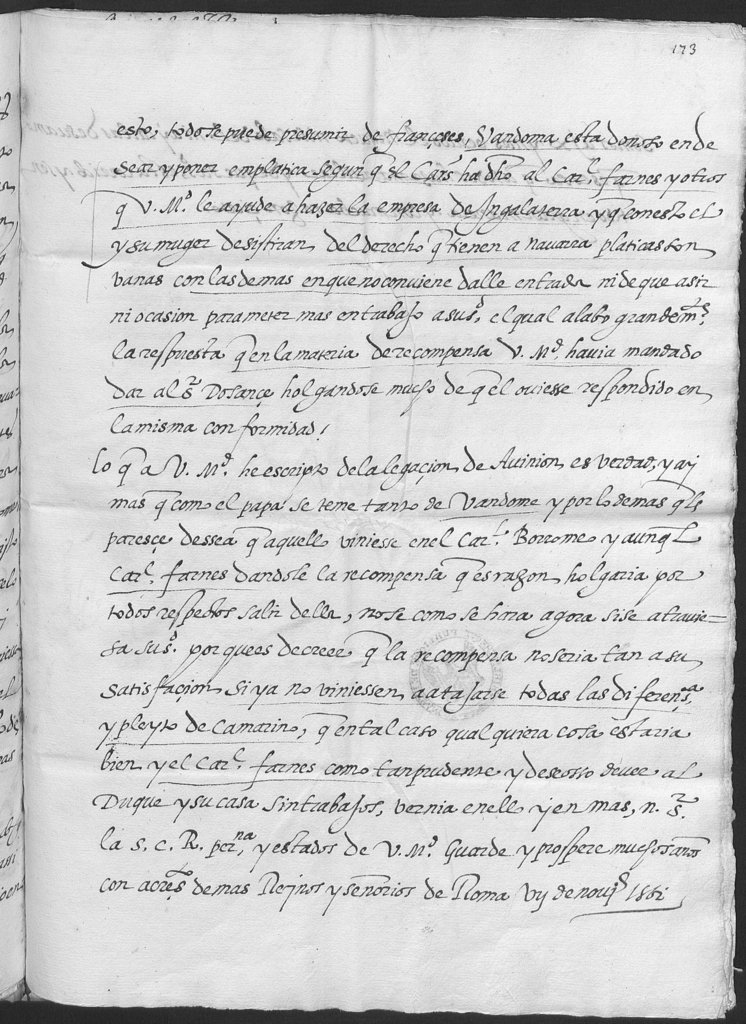 173
esto, todo se puede presumir de françeses, Vandoma esta donoso en de
sear y poner en platica segun q̃ el Carl ha dho al Carl. farnes y otros
q̃ V. Md. le ayude a hazer la empresa de Ingalaterra y q̃ con esto el
y su muger desistiran del derecho q̃ tienen a navarra platicas son
vanas con las demas en que no conviene dalle entrada ni de que asir
ni ocasion para meter mas en trabajo a su sd. el qual alabo grandemte.
la respuesta q̃ en la materia de recompensa V. Md. havia mandado
dar al sr. Dosançe holgandose mucho de q̃ el oviesse respondido en
la misma conformidad /
lo q̃ a V. Md. he escripto de la legaçion de Avinion es verdad, y ay
mas q̃ como el papa se teme tanto de Vandome y por lo demas q̃ le
paresçe dessea q̃ aquello viniesse en el Carl. Borromeo y aunq̃ l
Carl. farnes dandole la recompensa q̃ es razon holgaria por
todos respectos salir della, no se como se hara agora si se atravie=
sa su sd. porque es de creer q̃ la recompensa no seria tan a su
satisfaçion si ya no viniessen a atajarse todas las diferençias
y pleyto de Camarino, q̃ en tal caso qual quiera cosa estaria
bien y el Carl. farnes como tan prudente y desseoso de ver al
Duque y su casa sin trabajos, vernia en ello y en mas, n. sr.
la S. C. R. perna. y estados de V. Md. Guarde y prospere muchos años
con acresçentamiento de mas Reynos y señorios de Roma Vij de nove 1561